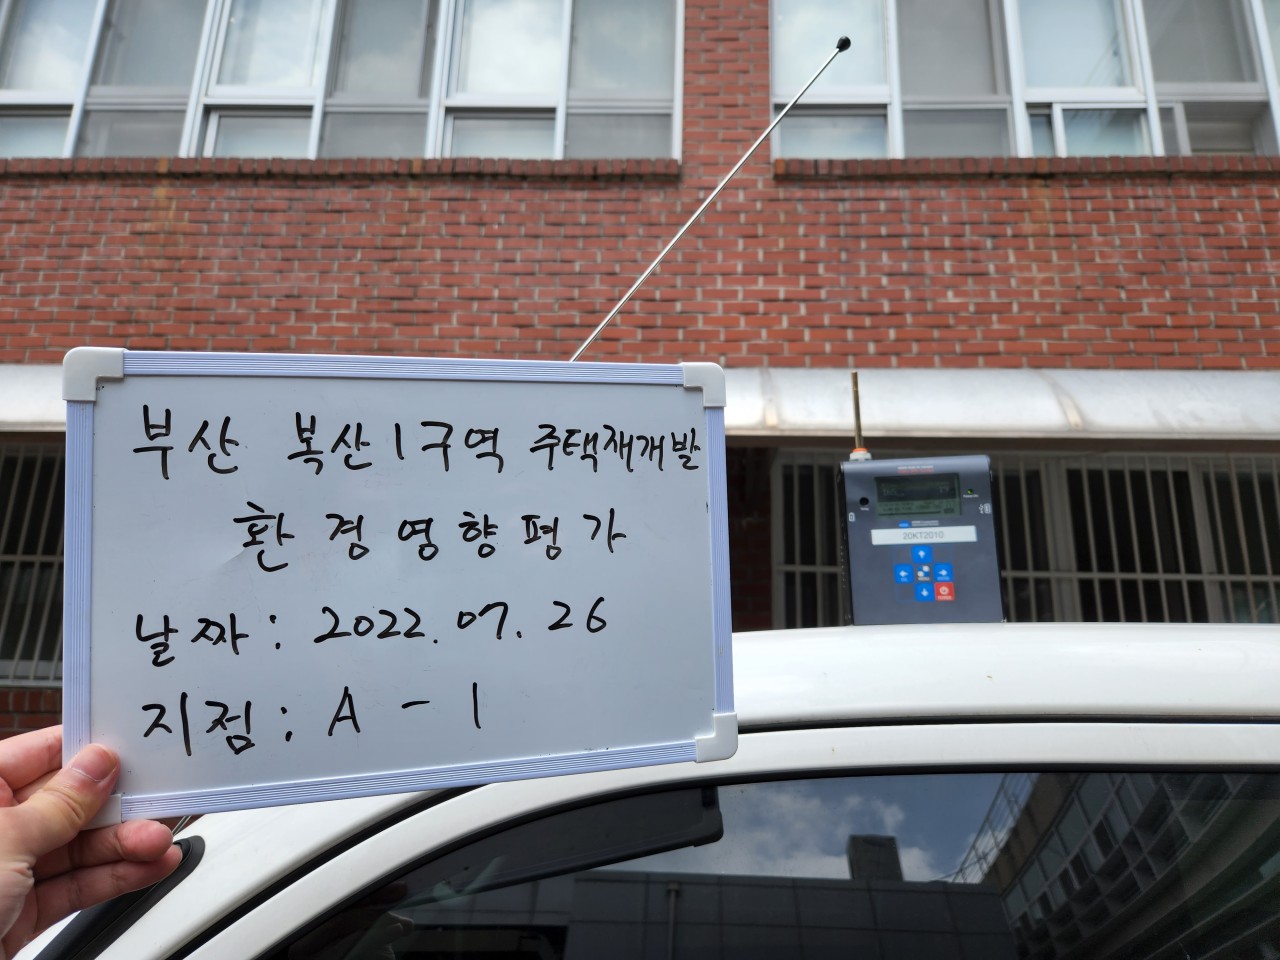 부산 복산1구역 주택재개발
환경영향평가
날짜: 2022.07.26
지점: A-1
20KT2010